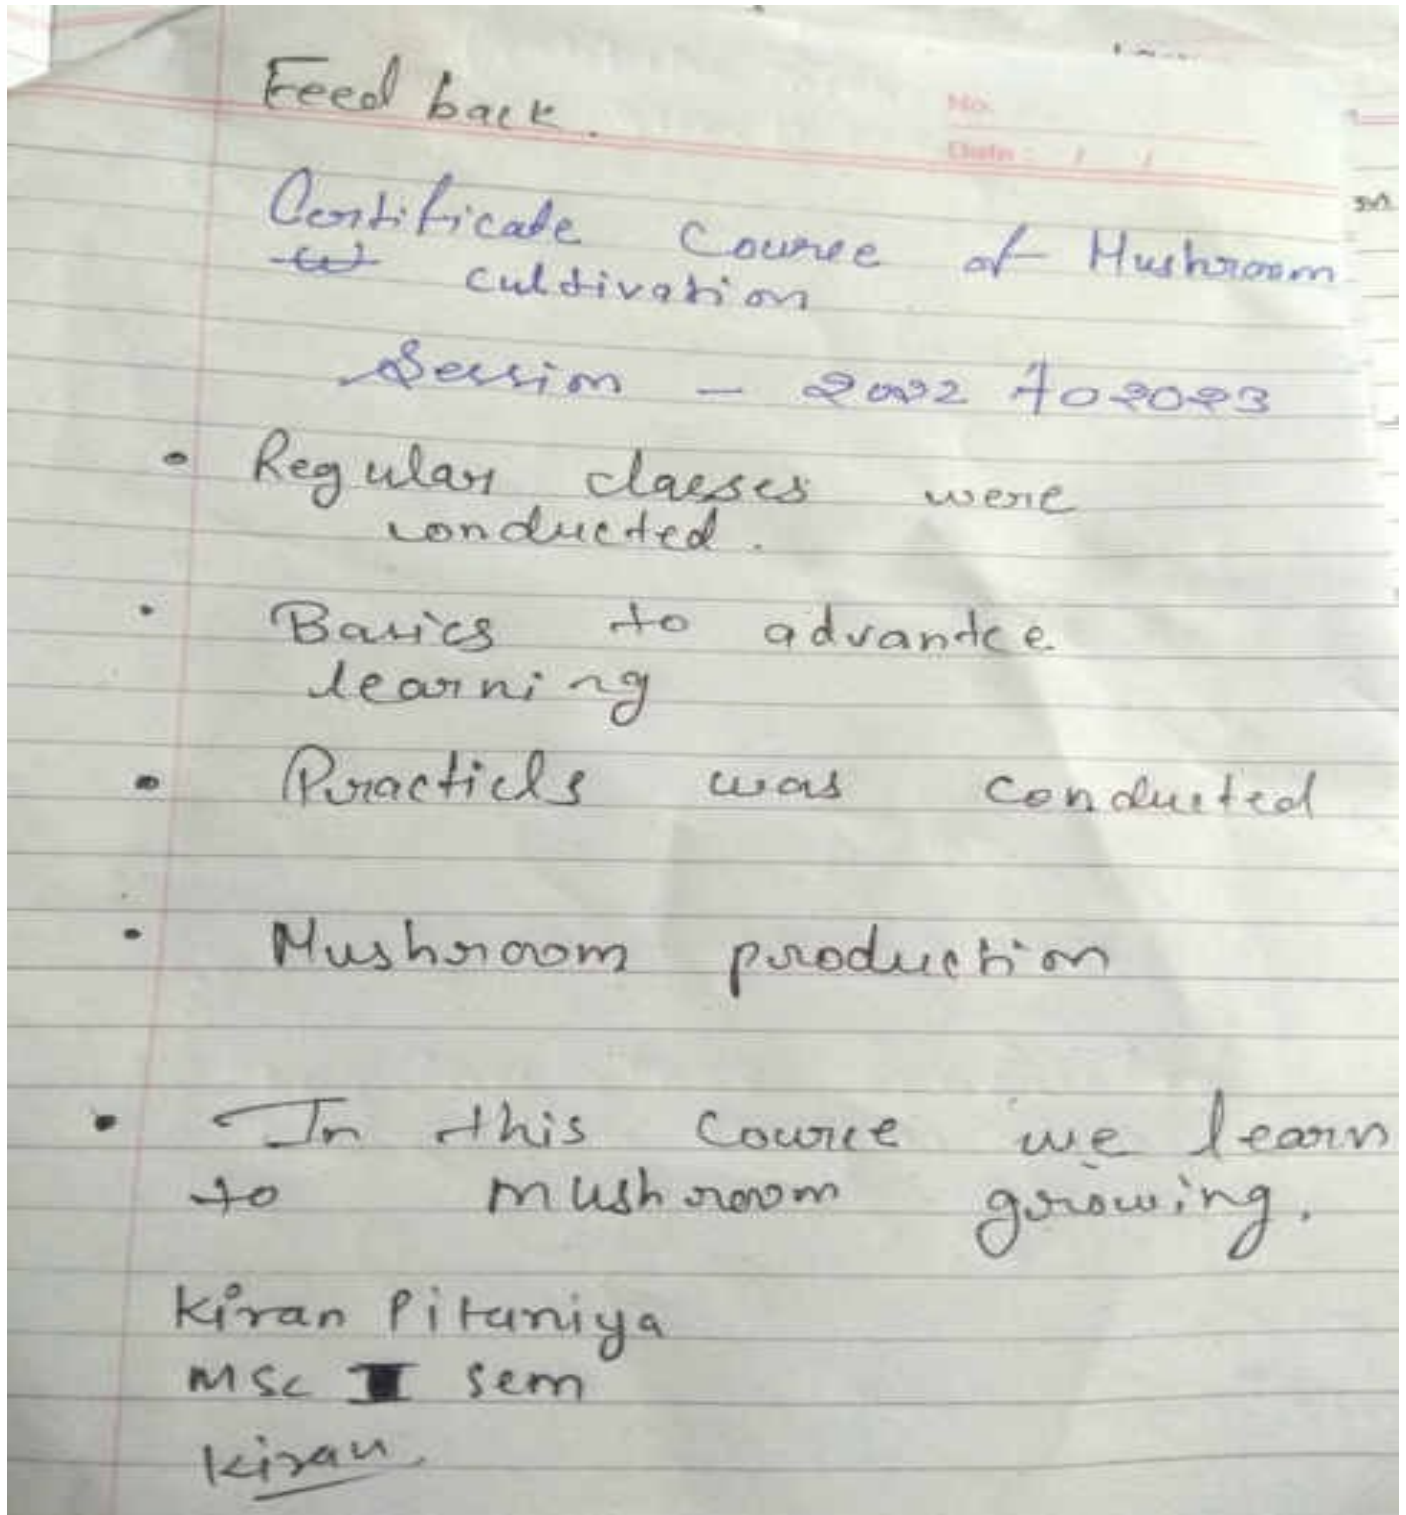 Feed back.
No.
Date : / /
Certificate Course of Mushroom
cultivation
Session - 2022 to 2023
• Regular classes were
conducted.
• Basics to advantce
learning
• Practicls was conducted
• Mushroom production
• In this Course we learn
to mushroom growing.
Kiran Pitaniya
MSc I sem
Kiran